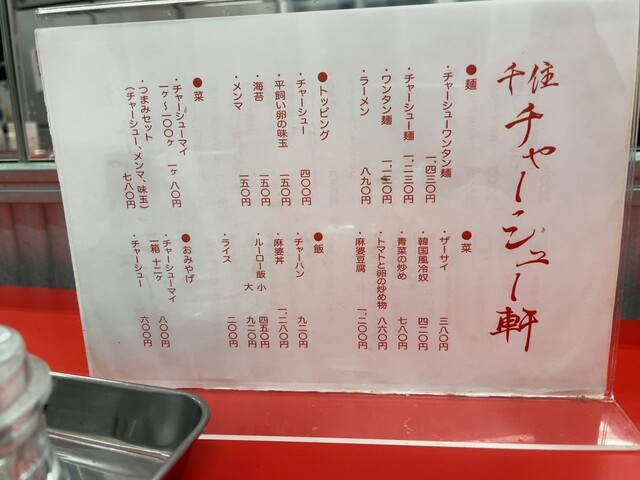 千住チャーシュー軒
●麺
・チャーシューワンタン麺 一、四三〇円
・チャーシュー麺 一、二三〇円
・ワンタン麺 一、一三〇円
・ラーメン 八九〇円
●トッピング
・チャーシュー 四〇〇円
・平飼い卵の味玉 一五〇円
・海苔 一五〇円
・メンマ 一五〇円
●菜
・チャーシューマイ 一ヶ 八〇円
一ヶ〜一〇〇ヶ
・つまみセット
(チャーシュー、メンマ、味玉) 七八〇円
●菜
・ザーサイ 三八〇円
・韓国風冷奴 四二〇円
・青菜の炒め 七八〇円
・トマトと卵の炒め物 八六〇円
・麻婆豆腐 一、二〇〇円
●飯
・チャーハン 九二〇円
・麻婆丼 一、二八〇円
・ルーロー飯 小 四五〇円
大 九二〇円
・ライス 二〇〇円
●おみやげ
・チャーシューマイ 八〇〇円
一箱 十二ヶ
・チャーシュー 六〇〇円